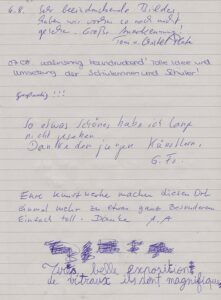 4.8. Sehr beeindruckende Bilder
haben wir vorher so noch nicht
gesehen. Große Anerkennung!
07.08. wahnsinnig beeindruckend! Tolle Idee und
Umsetzung der Schülerinnen und Schüler!
Großartig!!!
So etwas schönes habe ich lange
nicht gesehen.
Danke der jungen Künstlern.
Eure Kunstwerke machen diesen Ort
einmal mehr zu etwas ganz Besonderem
Einfach toll. Danke
Très belle exposition
de vitraux ils sont magnifiques